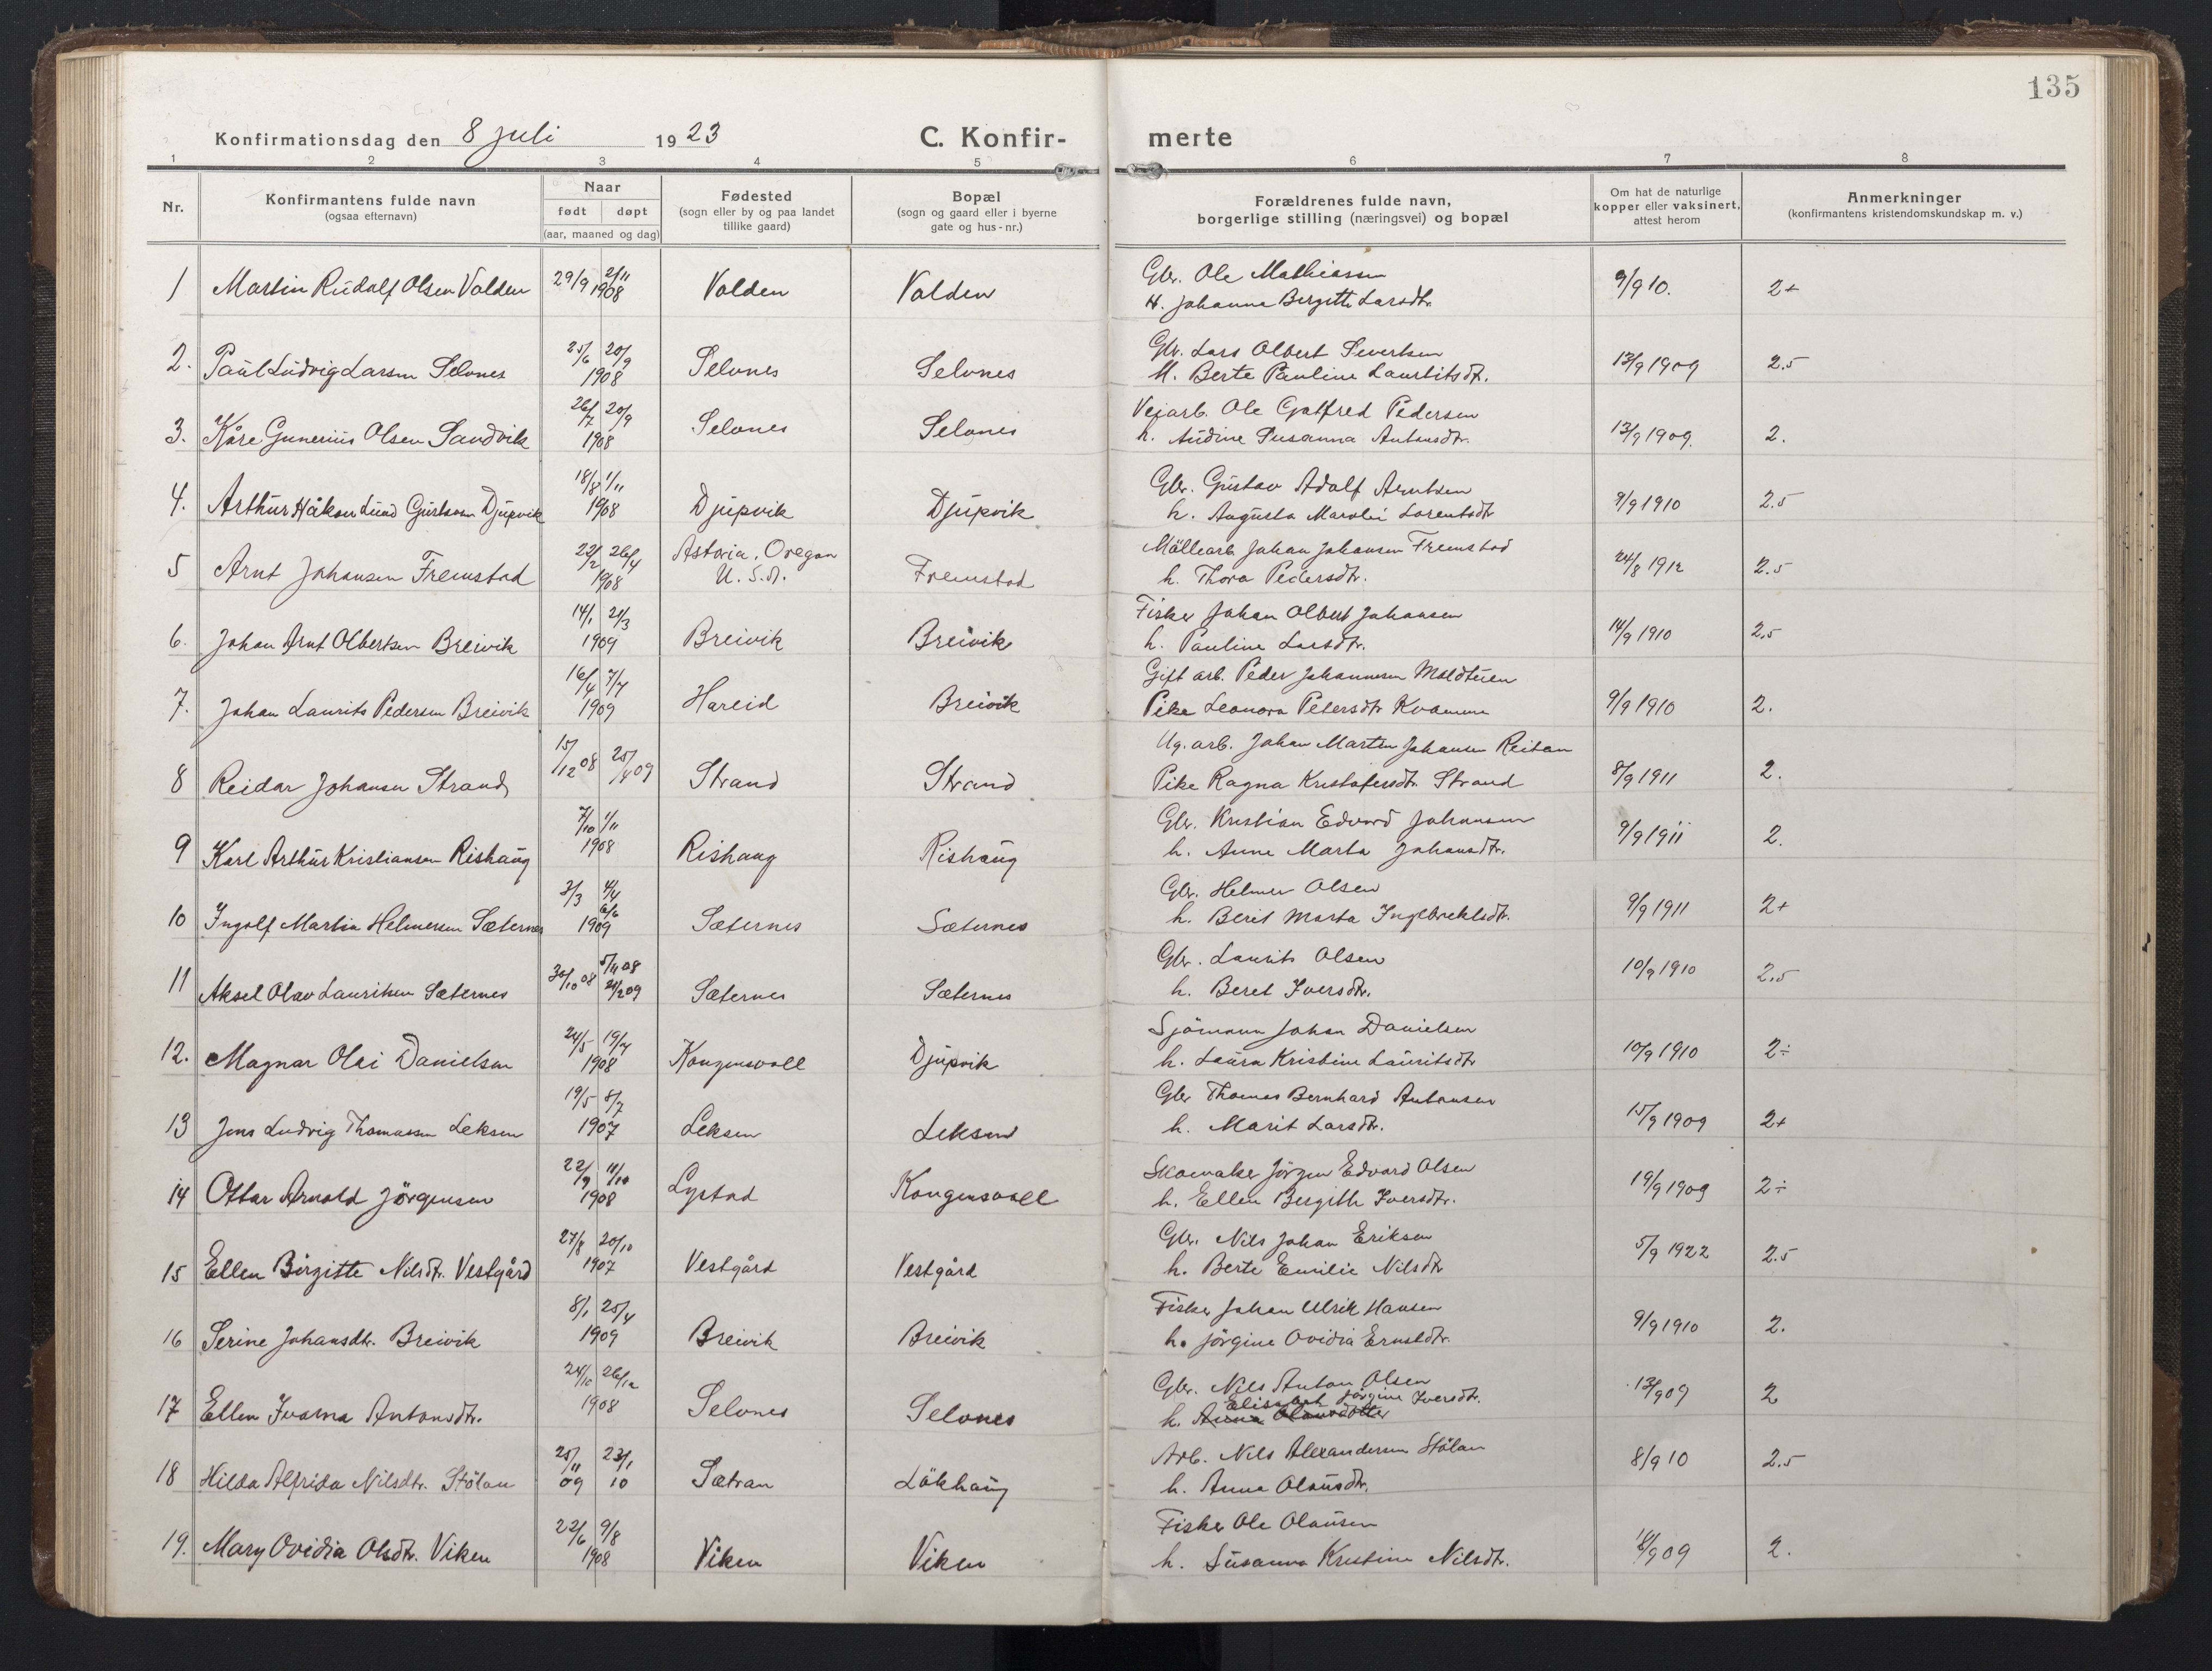 135
Konfirmationsdag den 8 juli 1923 C. Konfir- merte
1 2 3 4 5 6 7 8
Nr. Konfirmantens fulde navn (ogsaa efternavn) Naar født døpt (aar, maaned og dag) Fødested (sogn eller by og paa landet tillike gaard) Bopæl (sogn og gaard eller i byerne gate og hus-nr.) Forældrenes fulde navn, borgerlige stilling (næringsvei) og bopæl Om hat de naturlige kopper eller vaksinert, attest herom Anmerkninger (konfirmantens kristendomskundskap m. v.)
1 Martin Rudolf Olsen Valden 29/9 2/11 1908 Valden Valden Gbr. Ole Mathiassen 9/9 10. 2+
H. Johanna Bergitte Larsdtr.
2. Paul Ludvig Larsen Selvnes 25/6 20/9 1908 Selvnes Selvnes Gbr. Lars Olbert Sivertsen 13/9 1909 2.5
H. Berte Pauline Lauritsdt.
3. Kåre Gunerius Olsen Sandvik 26/7 20/9 1908 Selvnes Selvnes Veiarb. Ole Gotfred Pedersen 13/9 1909. 2.
h. Audine Susanna Antonsdtr.
4. Arthur Håkon Lund Gustavsen Djupvik 18/8 1/11 1908 Djupvik Djupvik Gbr. Gustav Adolf Arntsen 9/9 1910 2.5
h. Augusta Marolei Lorentsdtr
5 Arnt Johansen Fremstad 22/2 26/4 1908 Astoria, Oregon U. S. A. Fremstad Möllearb Johan Johansen Fremstad 24/8 1912 2.5
h. Thora Pedersdtr.
6. Johan Arnt Olbertsen Breivik 14/1 21/3 1909 Breivik Breivik Fisker Johan Olbert Johansen 14/9 1910 2.5
h. Pauline Larsdtr.
7. Johan Laurits Pedersen Breivik 16/4 7/7 1909 Hareid Breivik Gift arb. Peder Johannesen Moldtuen 9/9 1910 2.
Pike Leonora Petersdtr Kvamme
8 Reidar Johansen Strand 15/12 08 25/4 09 Strand Strand Ug. arb. Johan Martin Johansen Reitan 8/9 1911 2.
Pike Ragna Kristofersdtr. Strand
9 Karl Arthur Kristiansen Rishaug 7/10 1/11 1908 Rishaug Rishaug Gbr. Kristian Edvard Johansen 9/9 1911 2.
h. Anne Marta Johansdtr.
10 Ingolf Martin Helmersen Sæternes 3/3 4/4 6/6 1909 Sæternes Sæternes Gbr. Helmer Olsen 9/9 1911 2+
h. Berit Marta Ingebrektsdtr.
11 Aksel Olav Lauritsen Sæternes 30/10 08 5/11 08 21/2 09 Sæternes Sæternes Gbr. Laurits Olsen 10/9 1910 2.5
h. Beret Iversdtr.
12. Magnar Olai Danielsen 24/5 19/7 1908 Kongensvoll Djupvik Sjömann Johan Danielsen 10/9 1910 2÷
h. Laura Kristine Lauritsdtr
13 Jens Ludvig Thomassen Leksen 19/5 8/7 1907 Leksen Leksen Gbr Thomas Bernhard Antonsen 15/9 1909 2+
h. Marit Larsdtr.
14 Ottar Arnold Jörgensen 22/9 11/10 1908 Lystad Kongensvoll Skomaker Jörgen Edvard Olsen 19/9 1909 2÷
h. Ellen Bergitte Iversdtr.
15 Ellen Birgitte Nilsdt. Vestgård 27/8 20/10 1907 Vestgård Vestgård Gbr. Nils Johan Eriksen 5/9 1922 2.5
h. Berte Emilie Nilsdtr
16 Serine Johansdtr. Breivik 8/1 25/4 1909 Breivik Breivik Fisker Johan Ulrik Hansen 9/9 1910 2.
h. Jörgine Ovidia Ernstdtr.
17 Ellen Ivarna Antonsdtr. 24/10 26/12 1908 Selvnes Selvnes Gbr. Nils Anton Olsen 13/9 09 2
Elisabet Jörgine Iversdtr.
h. Anna Olausdotter
18 Hilda Alfrida Nilsdtr. Stölan 25/11 09 23/1 10 Sætran Lökhaug Arb. Nils Alexandersen Stölan 8/9 10 2.5
h. Anna Olausdtr.
19. Mary Ovidia Olsdtr. Viken 22/6 9/8 1908 Viken Viken Fisker Ole Olausen 16/9 09 2.
h. Susanna Kristine Nilsdtr.